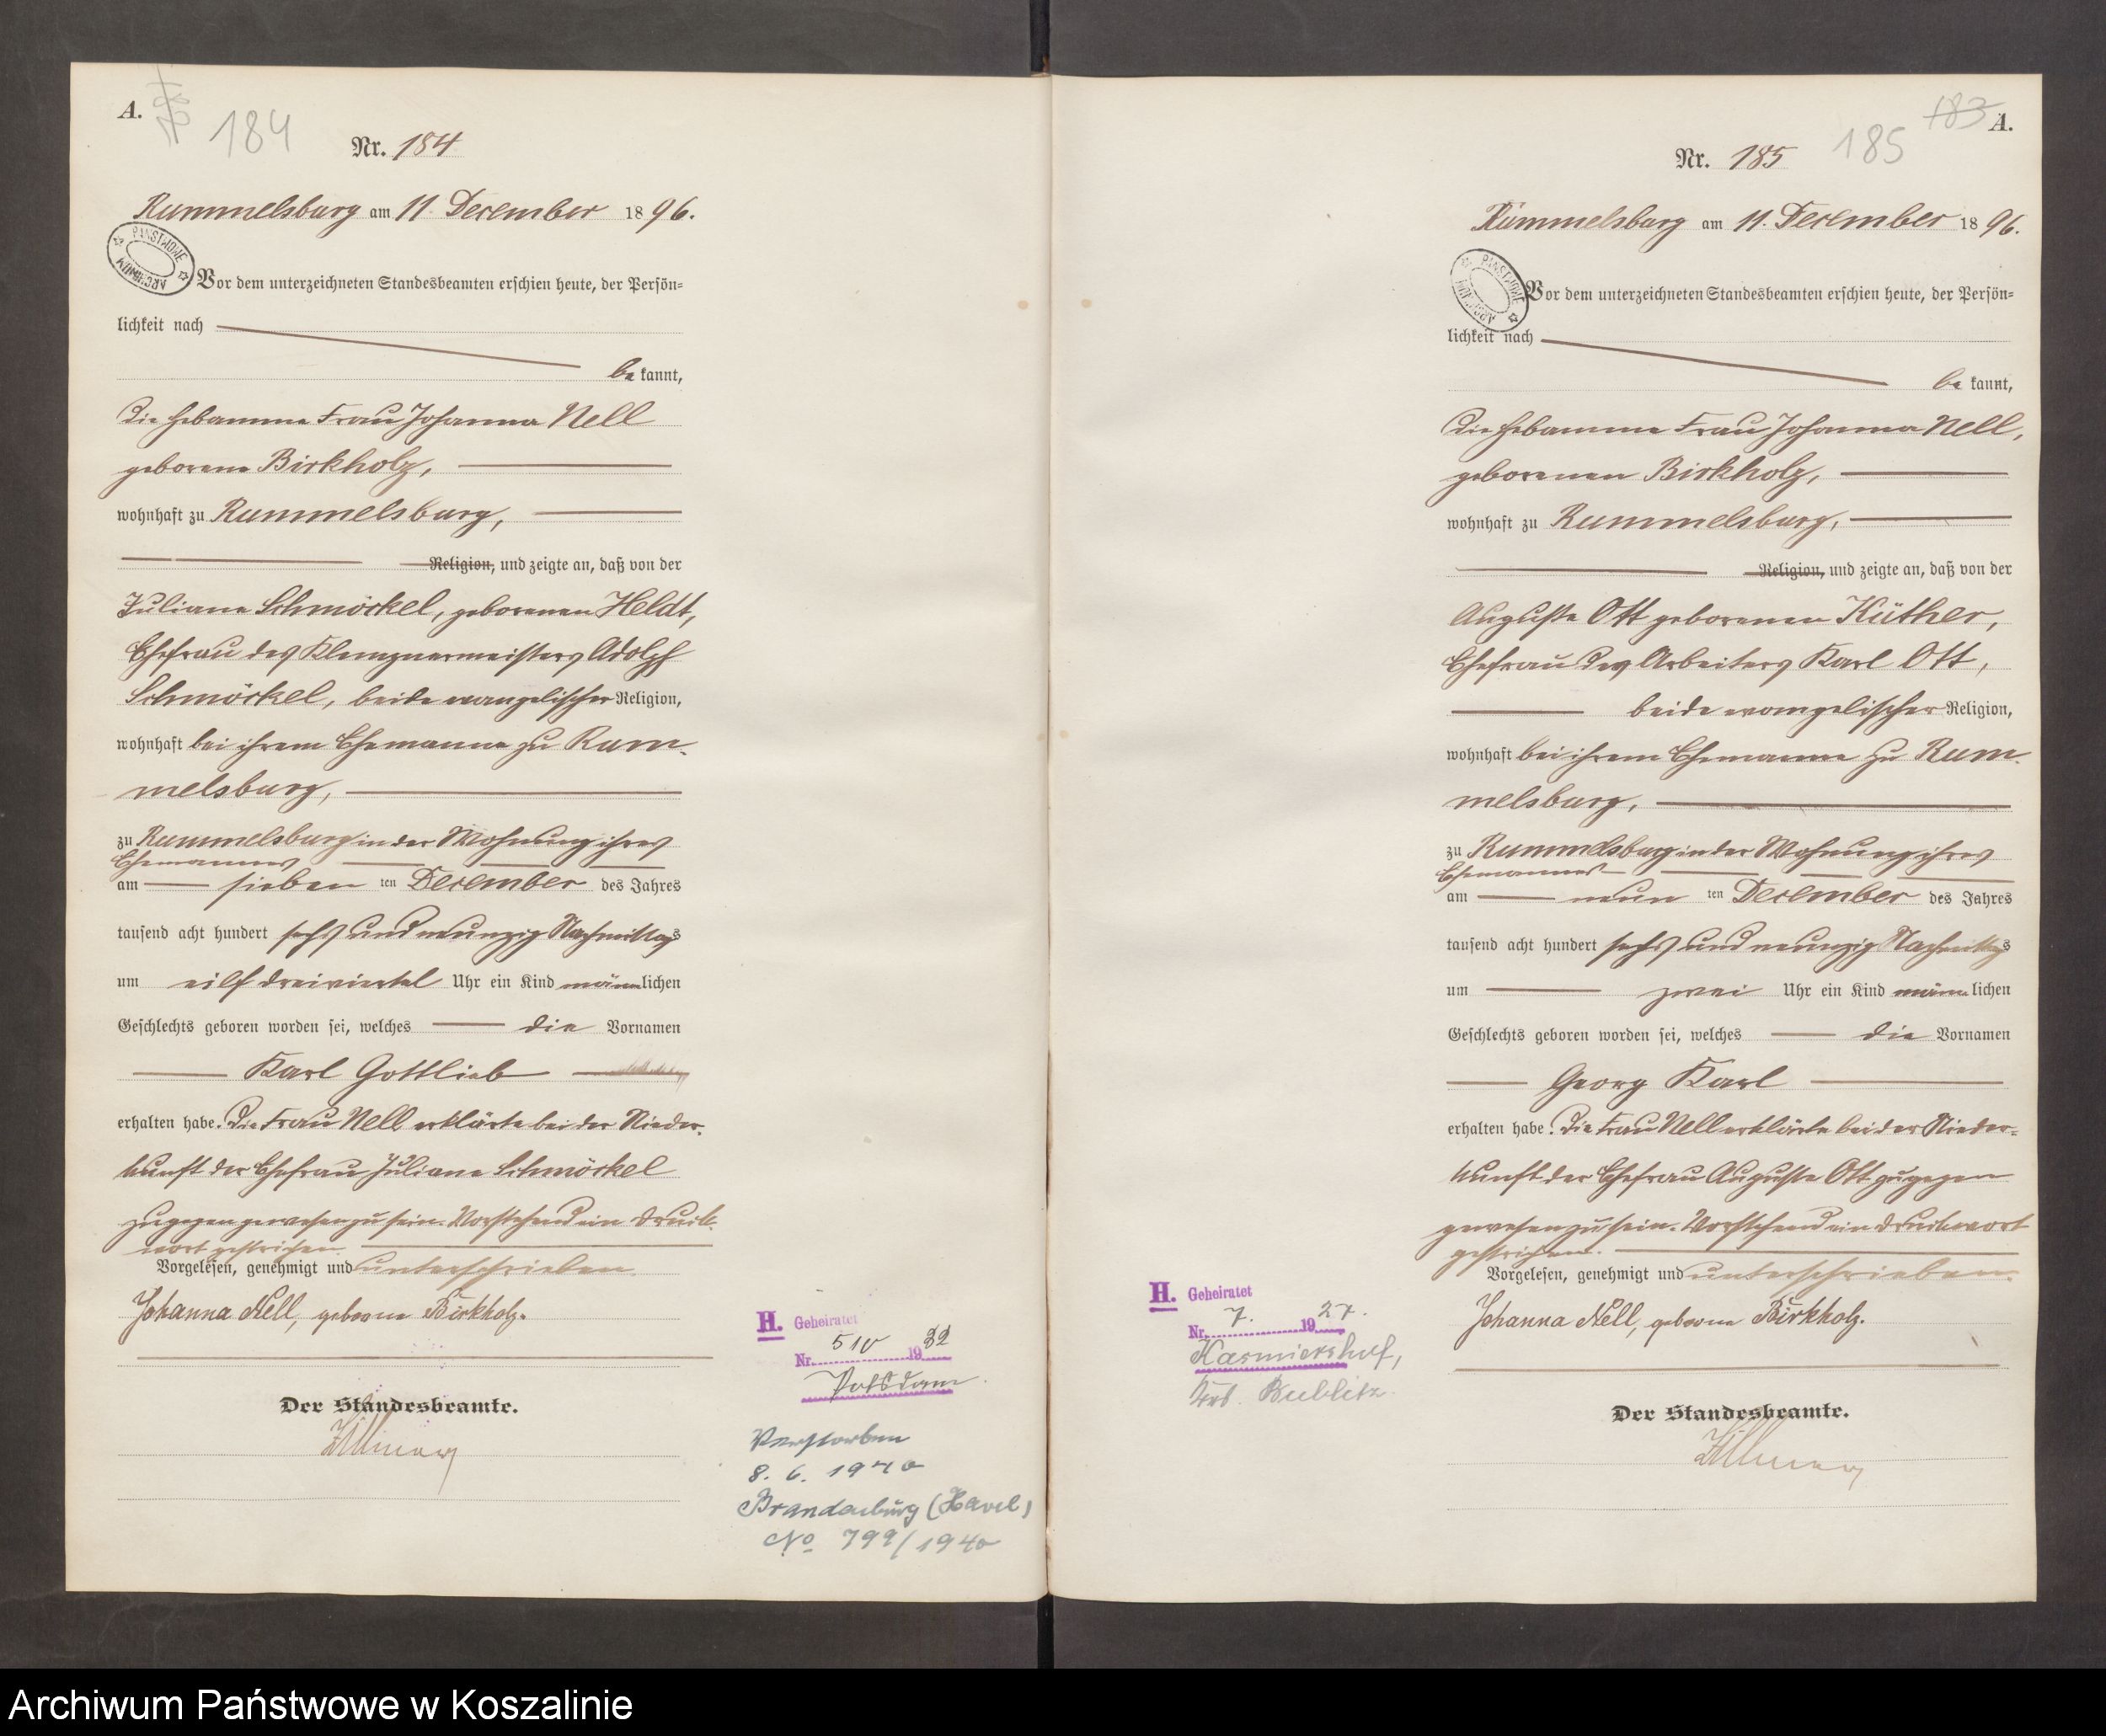 A.
184
Nr. 184
Rummelsburg am 11. December 1896.
PAŃSTWOWE ARCHIWUM
Vor dem unterzeichneten Standesbeamten erschien heute, der Persön-
lichkeit nach
be kannt,
die Hebamme Frau Johanna Nell
geborene Birkholz,
wohnhaft zu Rummelsburg,
Religion, und zeigte an, daß von der
Juliane Schmöckel, geborenen Heldt,
Ehefrau des Klempnermeisters Adolph
Schmöckel, beide evangelischer Religion,
wohnhaft bei ihrem Ehemanne zu Rum-
melsburg,
zu Rummelsburg in der Wohnung ihres
Ehemannes
am sieben ten December des Jahres
tausend acht hundert sechs und neunzig Nachmittags
um eilf dreiviertel Uhr ein Kind männlichen
Geschlechts geboren worden sei, welches die Vornamen
Karl Gottlieb
erhalten habe. Die Frau Nell erklärte bei der Nieder-
kunft der Ehefrau Juliane Schmöckel
zugegen gewesen zu sein. Vorstehend ein Druck-
wort gestrichen.
Vorgelesen, genehmigt und unterschrieben
Johanna Nell, geborne Birkholz.
Der Standesbeamte.
H. Geheiratet
Nr. 510 1932
Potsdam
Verstorben
8. 6. 1940
Brandenburg (Havel)
No 799/1940
183 A.
185
Nr. 185
Rummelsburg am 11. December 1896.
PAŃSTWOWE ARCHIWUM
Vor dem unterzeichneten Standesbeamten erschien heute, der Persön-
lichkeit nach
be kannt,
die Hebamme Frau Johanna Nell,
geborenen Birkholz,
wohnhaft zu Rummelsburg,
Religion, und zeigte an, daß von der
Auguste Ott geborenen Küther,
Ehefrau des Arbeiters Karl Ott,
beide evangelischer Religion,
wohnhaft bei ihrem Ehemanne zu Rum-
melsburg,
zu Rummelsburg in der Wohnung ihres
Ehemannes
am neun ten December des Jahres
tausend acht hundert sechs und neunzig Nachmittags
um zwei Uhr ein Kind männlichen
Geschlechts geboren worden sei, welches die Vornamen
Georg Karl
erhalten habe. Die Frau Nell erklärte bei der Nieder-
kunft der Ehefrau Auguste Ott zugegen
gewesen zu sein. Vorstehend ein Druckwort
gestrichen.
Vorgelesen, genehmigt und unterschrieben.
Johanna Nell, geborne Birkholz.
Der Standesbeamte.
H. Geheiratet
Nr. 7. 1927.
Kasmirshof,
Bublitz
Archiwum Państwowe w Koszalinie